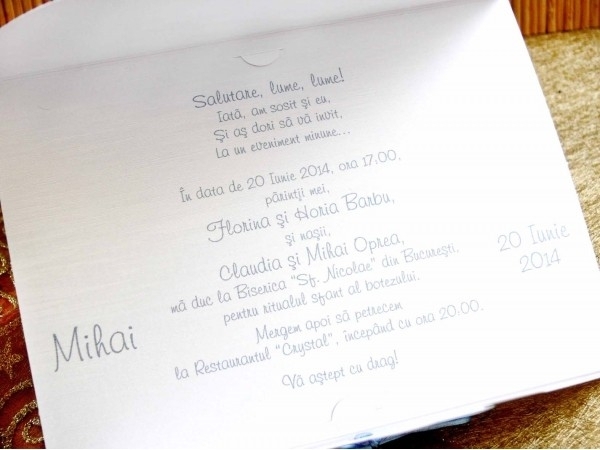 Salutare, lume, lume!
Iată, am sosit şi eu,
Şi aş dori să vă invit,
La un eveniment minune...
În data de 20 Iunie 2014, ora 17.00,
părinţii mei,
Florina şi Horia Barbu,
şi naşii,
Claudia şi Mihai Oprea,
mă duc la Biserica "Sf. Nicolae" din Bucureşti,
pentru ritualul sfânt al botezului.
Mergem apoi să petrecem
la Restaurantul "Crystal", începând cu ora 20.00.
Vă aştept cu drag!
Mihai
20 Iunie
2014